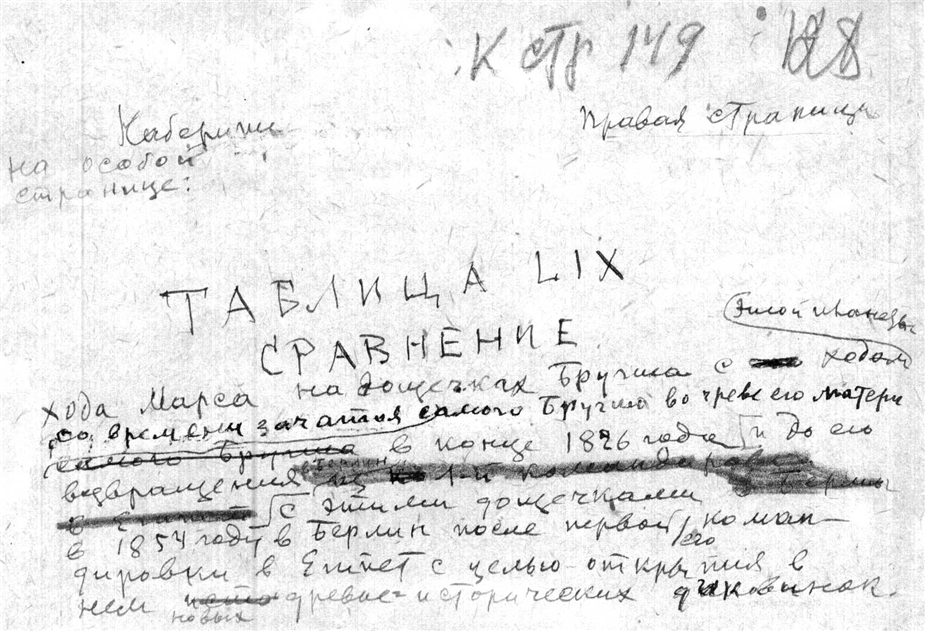 К стр 149
Правая страница
на особой
странице:
ТАБЛИЦА LIX
СРАВНЕНИЕ
этой
хода Марса на дощечках Бругша с ходом
со времени зачатия самого Бругша во чреве его матери
самого Бругша в конце 1826 года и до его
возвращения в Берлин из командировки
в Египет с этими дощечками
в 1854 году в Берлин после первой его коман-
дировки в Египет с целью открытия в
нем древне-исторических диковинок.
новых